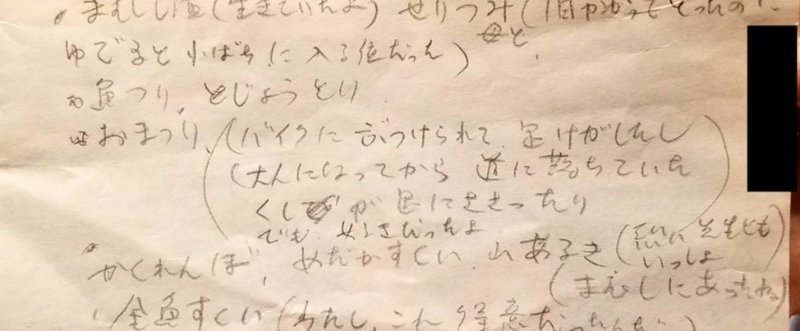 まむし酒(生きていたよ) せりつみ(1日中かかってとったのに
母と、
ゆでると小ばちに入る位だった)
魚つり、どじょうとり
おまつり、(バイクに ぶつけられて、足けがしたし
(大人になってから 道に落ちていた
くしが足にささったり
でも 好きだったよ
かくれんぼ、めだかすくい、山あるき(先生とも
いっしょ
(まむしにあったね)
金魚すくい(わたし、これ得意だったんだ)